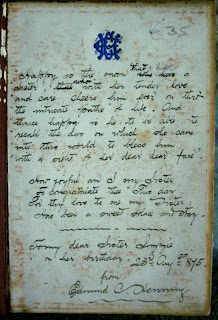 35
Happy is the man that has a
sister, who with her tender love
and care Cheers him ever on thro'
the intricate paths of life. And
thrice happy is he to be able to
recall the day on which she came
into this world to bless him
with a sight of her dear dear face
How joyful am I my Sister
To congratulate thee this day
For thy love to me my Sister
Has been a sweet solace and stay.
To my dear Sister
on her birthday 23rd Aug 1875
from
Edmund C.